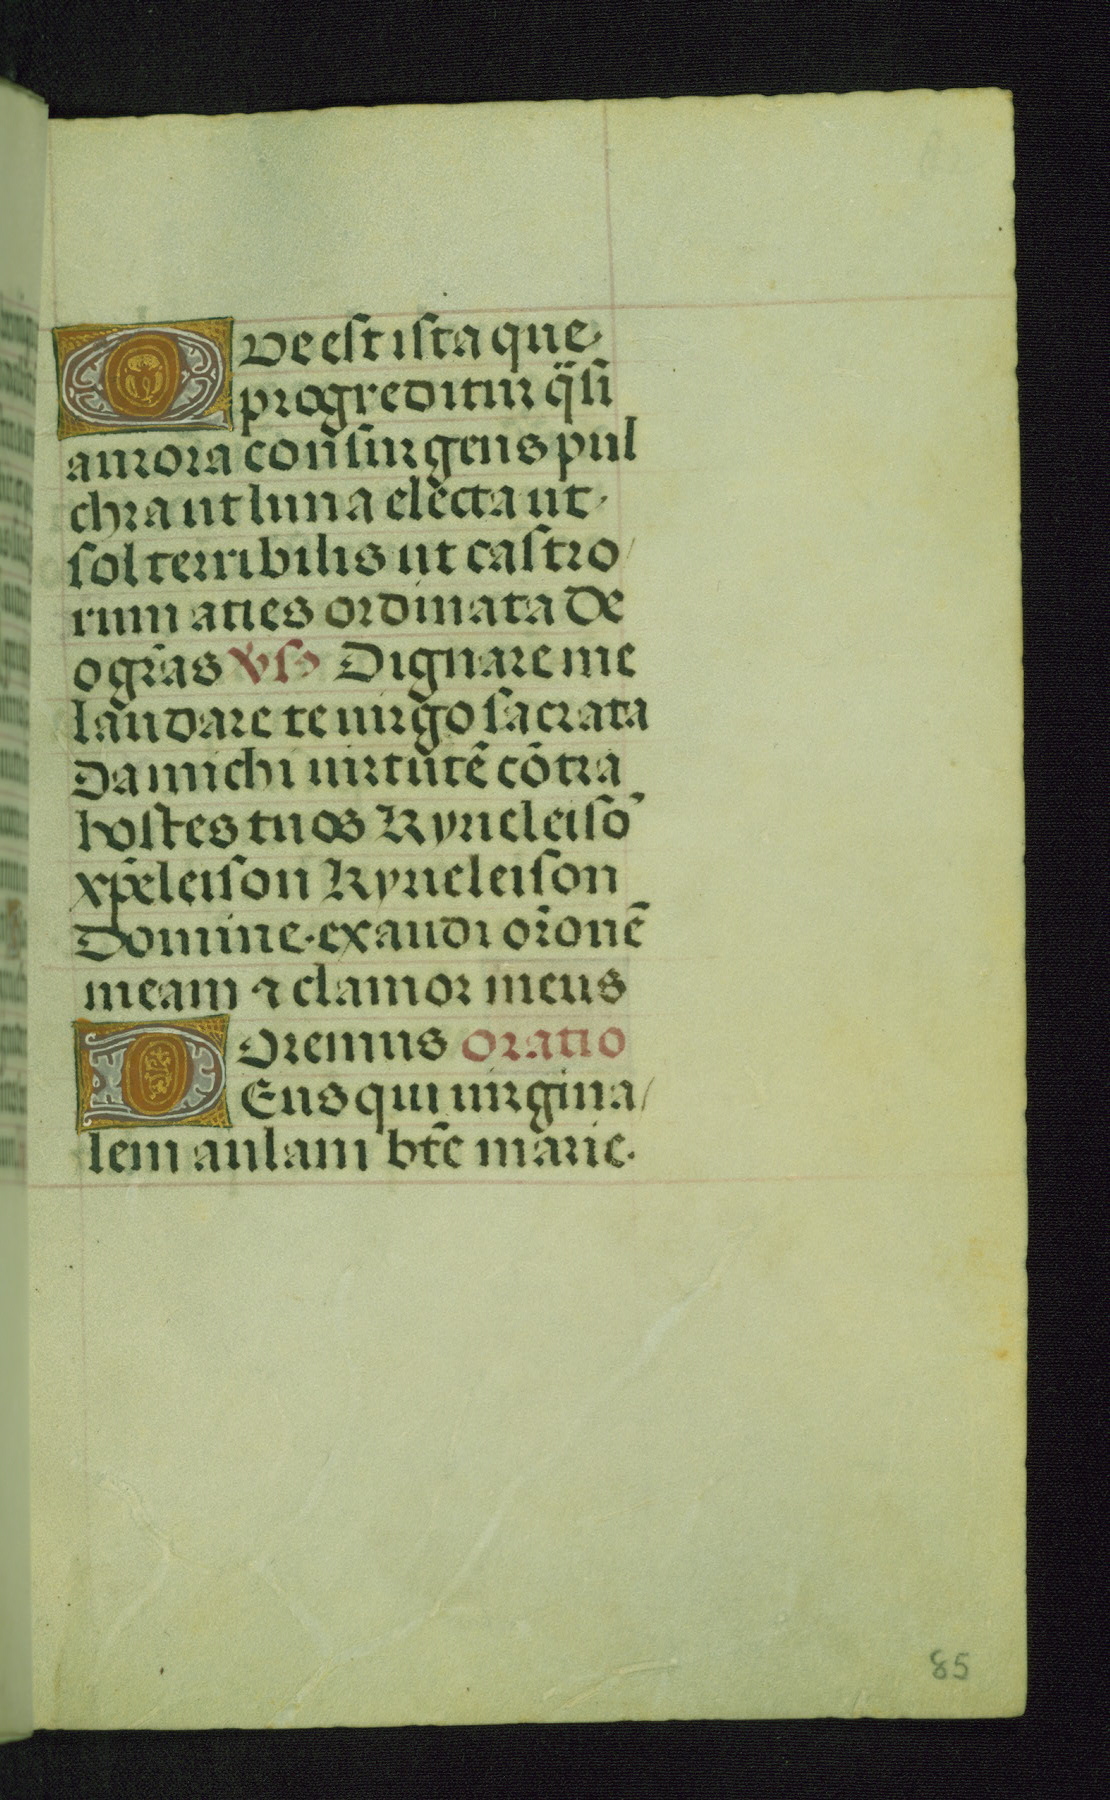 Que est ista que
progreditur q̈si
aurora consurgens pul
chra ut luna electa ut
sol terribilis ut castro
rum acies ordinata De
o gr̃as v̾so Dignare me
laudare te uirgo sacrata
Da michi uirtutẽ cõtra
hostes tuos Kyrieleisõ
xp̃eleison Kyrieleison
Domine·exaudi or̃onẽ
meam ⁊ clamor meus
Oremus oratio
DEus qui uirgina
lem aulam bt̃e marie·
85